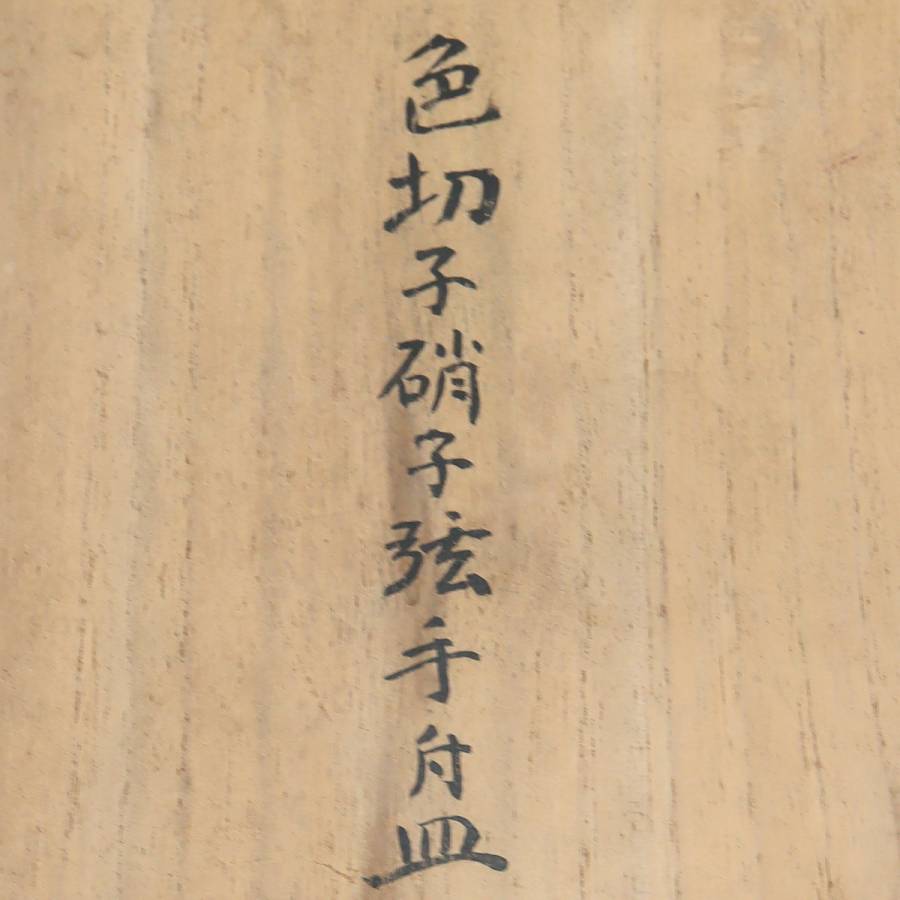 色切子硝子弦手付皿